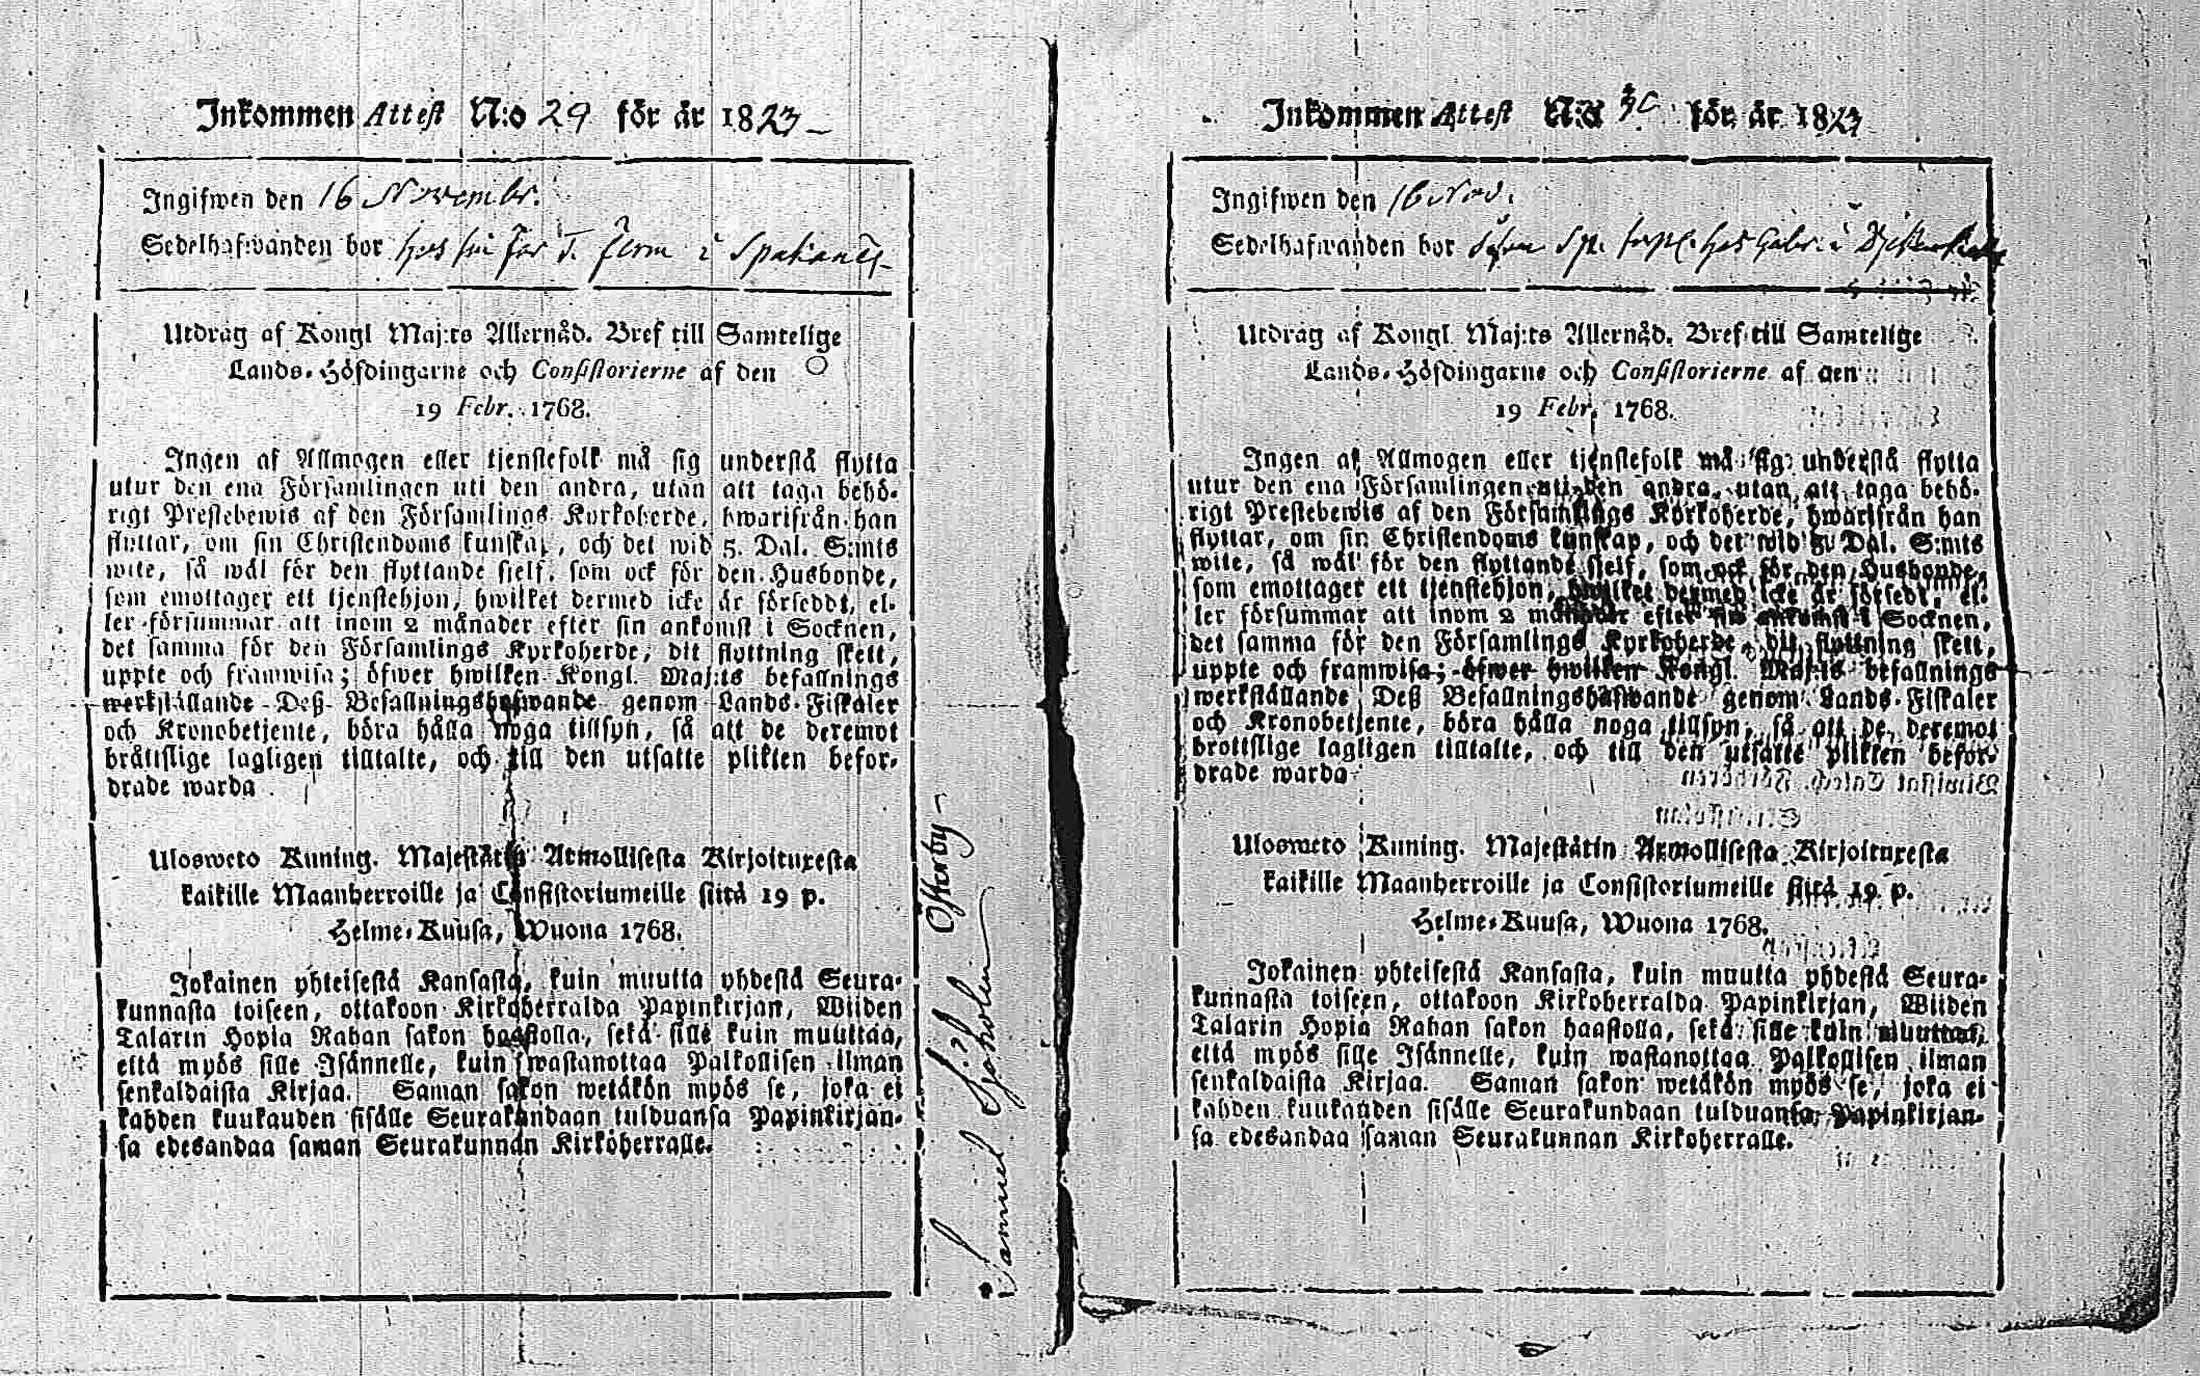 Inkommen Attest N:o 29 för år 1823
Ingifwen den 16 Novembr.
Sedelhafwanden bor hos sin far T. i
Utdrag af Kongl Maj:ts Allernåd. Bref till Samtelige
Lands-Höfdingarne och Consistorierne af den
19 Febr. 1768.
Ingen af Allmogen eller tjenstefolk må sig understå flytta
utur den ena Församlingen uti den andra, utan att taga behö-
rigt Prestebewis af den Församlings Kyrkoherde, hwarifrån han
flyttar, om sin Christendoms kunskap, och det wid 5. Dal. S:mts
wite, så wäl för den flyttande sielf, som ock för den Husbonde,
som emottager ett tjenstehjon, hwilket dermed icke är förseddt, el-
ler försummar att inom 2 månader efter sin ankomst i Socknen,
det samma för den Församlings Kyrkoherde, dit flyttning skett,
uppte och framwisa; öfwer hwilken Kongl. Maj:ts befallnings
werkställande Deß Befallningshafwande genom Lands-Fiskaler
och Kronobetjente, böra hålla noga tillsyn, så att de deremot
bråttslige lagligen tilltalte, och till den utsatte plikten befor-
drade warda
Ulosweto Kuning. Majestätin Armollisesta Kirjoituxesta
kaikille Maanherroille ja Consistoriumeille siitä 19 p.
Helme-Kuusa, Wuona 1768.
Jokainen yhteisestä Kansasta, kuin muutta yhdestä Seura-
kunnasta toiseen, ottakoon Kirkoherralda Papinkirjan, Wiiden
Talarin Hopia Rahan sakon haastolla, sekä sille kuin muuttaa,
että myös sille Isännelle, kuin wastanottaa Palkollisen ilman
senkaldaista Kirjaa. Saman sakon wetäkön myös se, joka ei
kahden kuukauden sisälle Seurakundaan tulduansa Papinkirjan-
sa edesandaa saman Seurakunnan Kirkoherralle.
Samuel Sjöholm Österby
Inkommen Attest N:o 30 för år 1823
Ingifwen den 16 Nov.
Sedelhafwanden bor hos Gabr. i
Utdrag af Kongl Maj:ts Allernåd. Bref till Samtelige
Lands-Höfdingarne och Consistorierne af den
19 Febr. 1768.
Ingen af Allmogen eller tjenstefolk må sig understå flytta
utur den ena Församlingen uti den andra, utan att taga behö-
rigt Prestebewis af den Församlings Kyrkoherde, hwarifrån han
flyttar, om sin Christendoms kunskap, och det wid 5. Dal. S:mts
wite, så wäl för den flyttande sjelf, som ock för den Husbonde,
som emottager ett tjenstehjon, hwilket dermed icke är försedt, el-
ler försummar att inom 2 månader efter sin ankomst i Socknen,
det samma för den Församlings Kyrkoherde, dit flyttning skett,
uppte och framwisa; öfwer hwilken Kongl. Maj:ts befallnings
werkställande Deß Befallningshafwande genom Lands-Fiskaler
och Kronobetjente, böra hålla noga tillsyn, så att de deremot
brottslige lagligen tilltalte, och till den utsatte plikten befor-
drade warda
Ulosweto Kuning. Majestätin Armollisesta Kirjoituxesta
kaikille Maanherroille ja Consistoriumeille siitä 19 p.
Helme-Kuusa, Wuona 1768.
Jokainen yhteisestä Kansasta, kuin muutta yhdestä Seura-
kunnasta toiseen, ottakoon Kirkoherralda Papinkirjan, Wiiden
Talarin Hopia Rahan sakon haastolla, sekä sille kuin muuttaa,
että myös sille Isännelle, kuin wastanottaa Palkollisen ilman
senkaldaista Kirjaa. Saman sakon wetäkön myös se, joka ei
kahden kuukauden sisälle Seurakundaan tulduansa Papinkirjan-
sa edesandaa saman Seurakunnan Kirkoherralle.